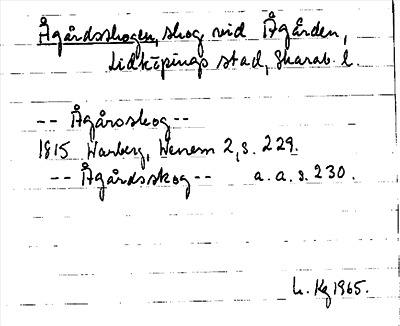 Ågårdsskogen, skog vid Ågården,
Lidköpings stad, Skarab. l.
-- Ågårdskog --
1815 Warberg, Wenern 2, s. 229.
-- Ågårdsskog -- a. a. s. 230.
L. Kg 1965.